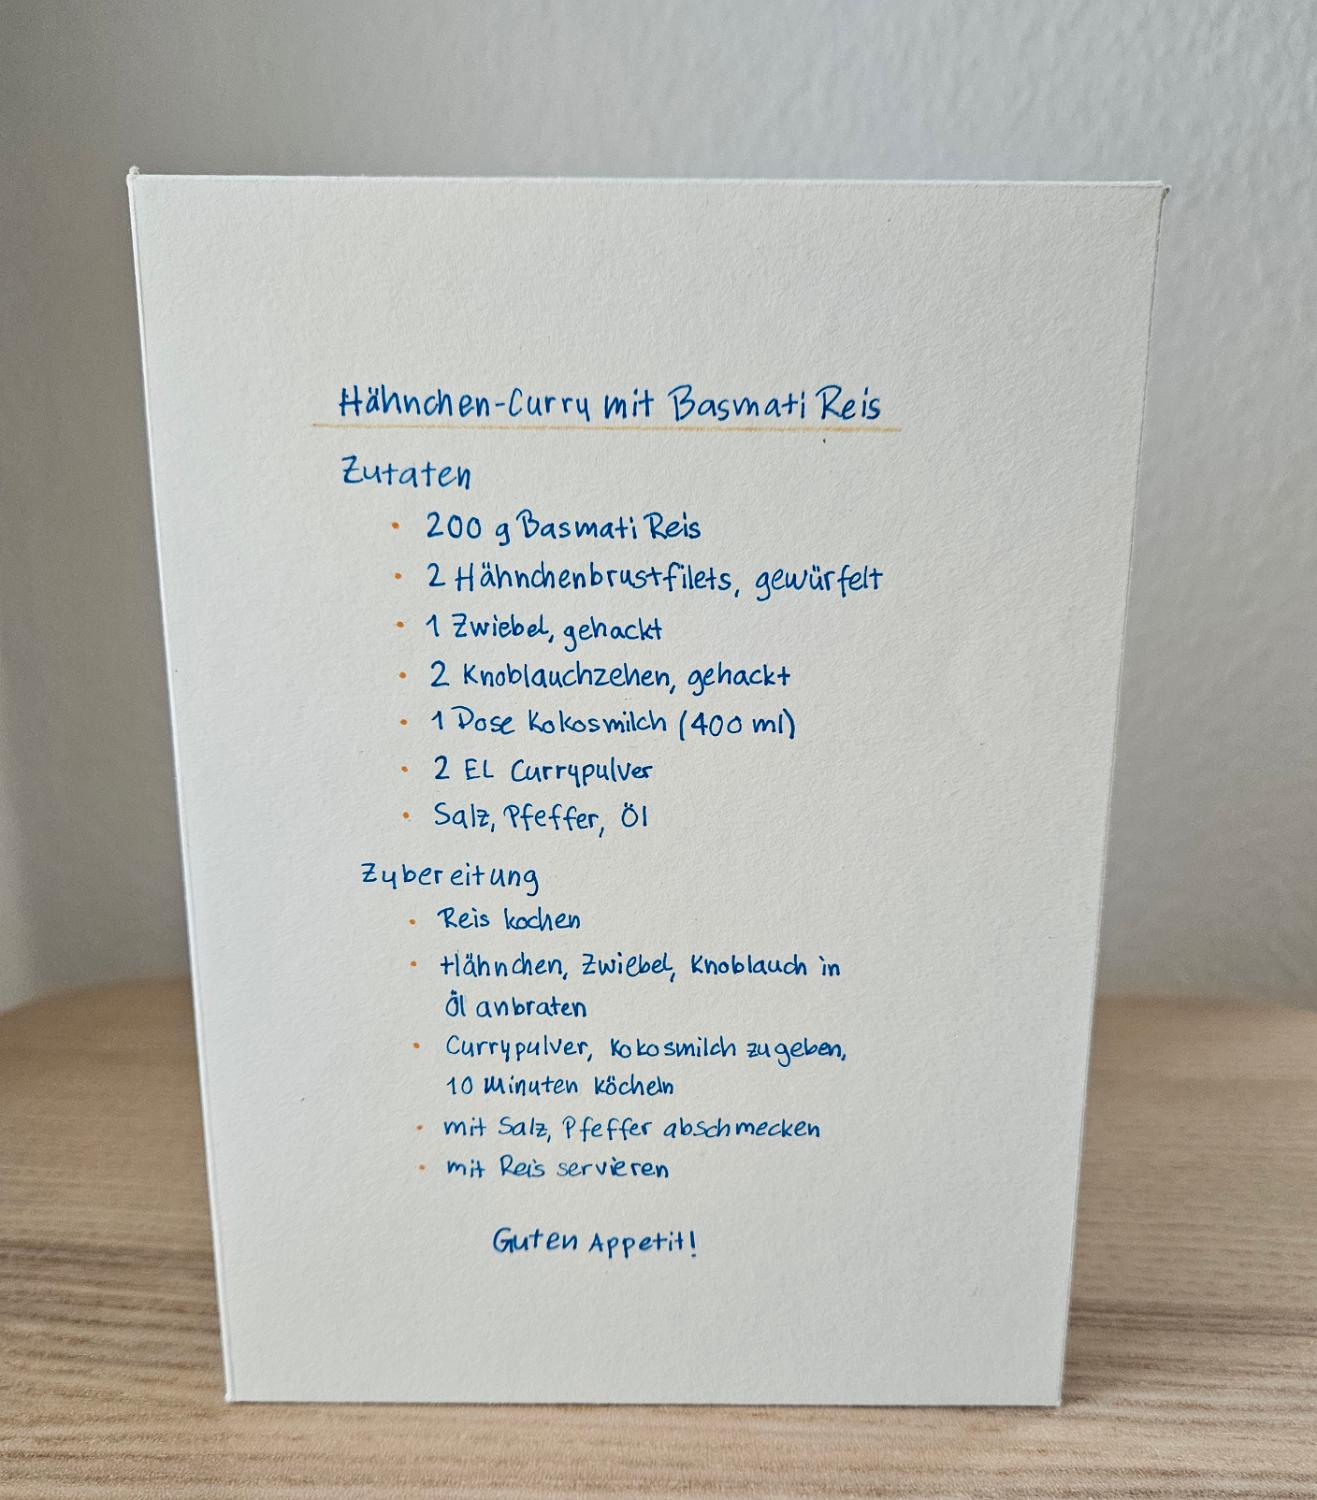 Hähnchen-Curry mit Basmati Reis
Zutaten
• 200 g Basmati Reis
• 2 Hähnchenbrustfilets, gewürfelt
• 1 Zwiebel, gehackt
• 2 Knoblauchzehen, gehackt
• 1 Dose Kokosmilch (400 ml)
• 2 EL Currypulver
• Salz, Pfeffer, Öl
Zybereitung
• Reis kochen
• Hähnchen, Zwiebel, Knoblauch in
Öl anbraten
• Currypulver, Kokosmilch zugeben,
10 Minuten köcheln
• mit Salz, Pfeffer abschmecken
• mit Reis servieren
Guten Appetit!